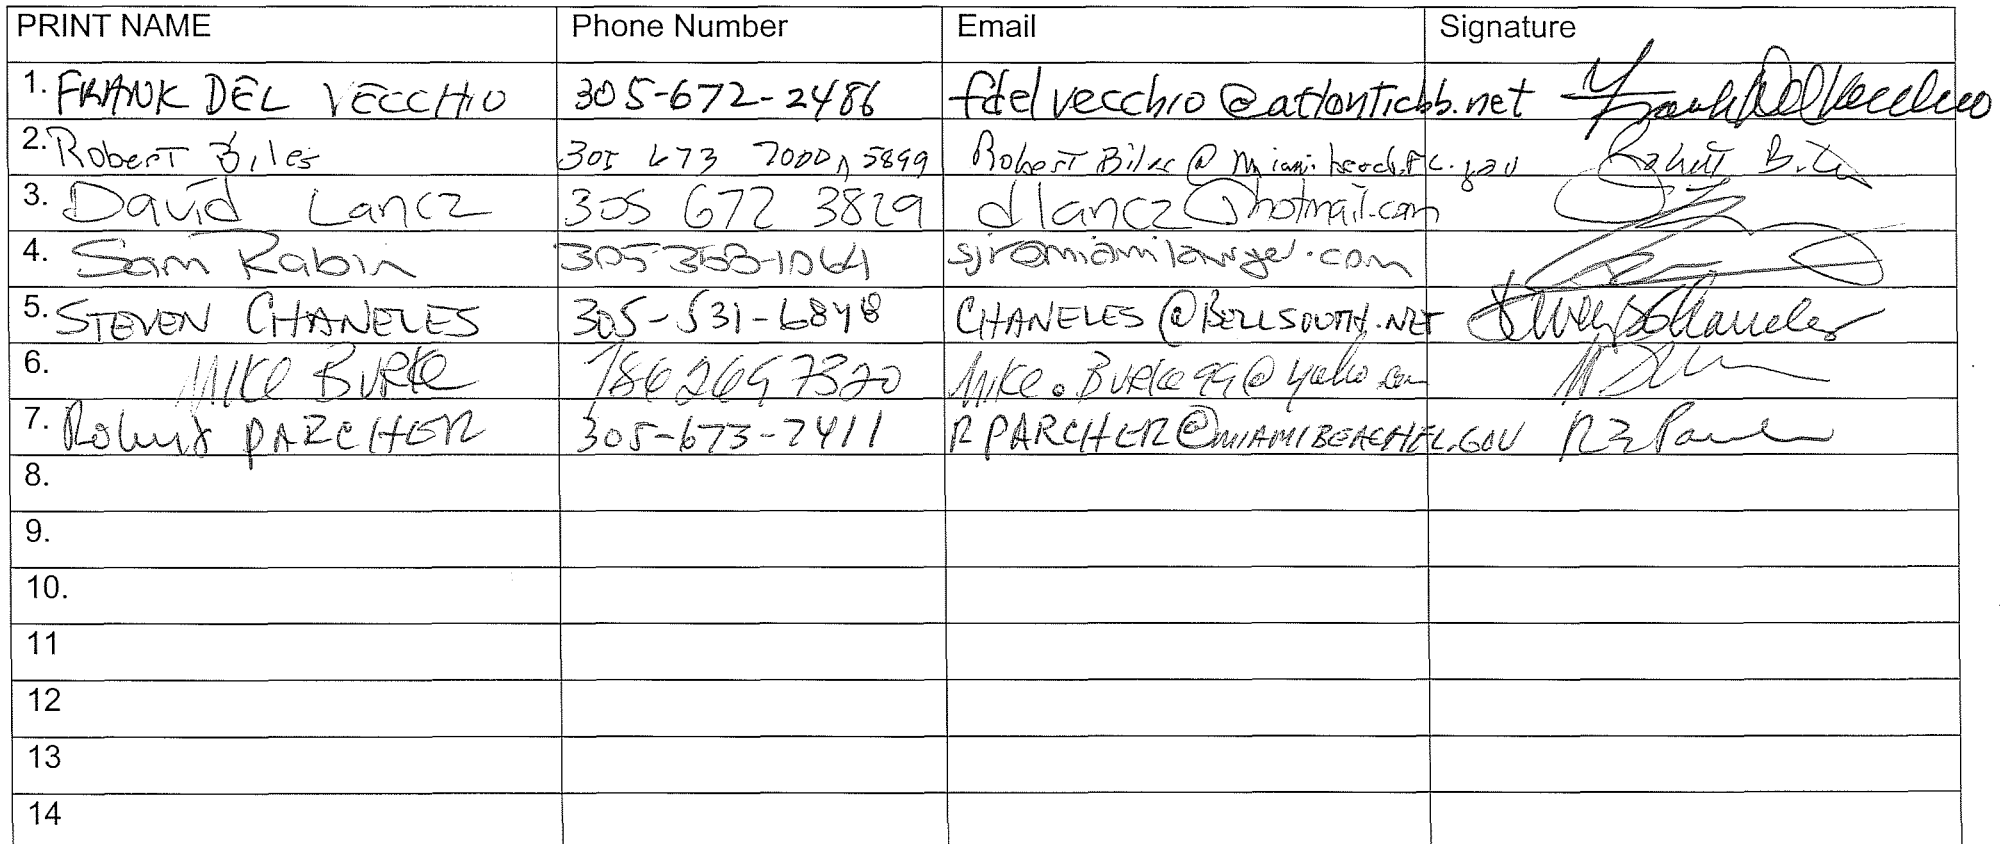 PRINT NAME Phone Number Email Signature
1. FRANK DEL VECCHIO 305-672-2486 fdelvecchio@atlanticbb.net Frank Del Vecchio
2. Robert Biles 305 673 7000 5899 Robert Biles@miamibeachfl.gov Robert Biles
3. David Lancz 305 672 3829 dlancz@hotmail.com
4. Sam Rabin 305 358-1064 sjr@miamilawyer.com
5. STEVEN CHANELES 305-531-6848 CHANELES@BELLSOUTH.NET Steven Chaneles
6. MIKE BURKE 786 269 7320 Mike.Burke99@yahoo.com
7. Robert PARCHER 305-673-7411 RPARCHER@MIAMIBEACHFL.GOV
8.
9.
10.
11
12
13
14